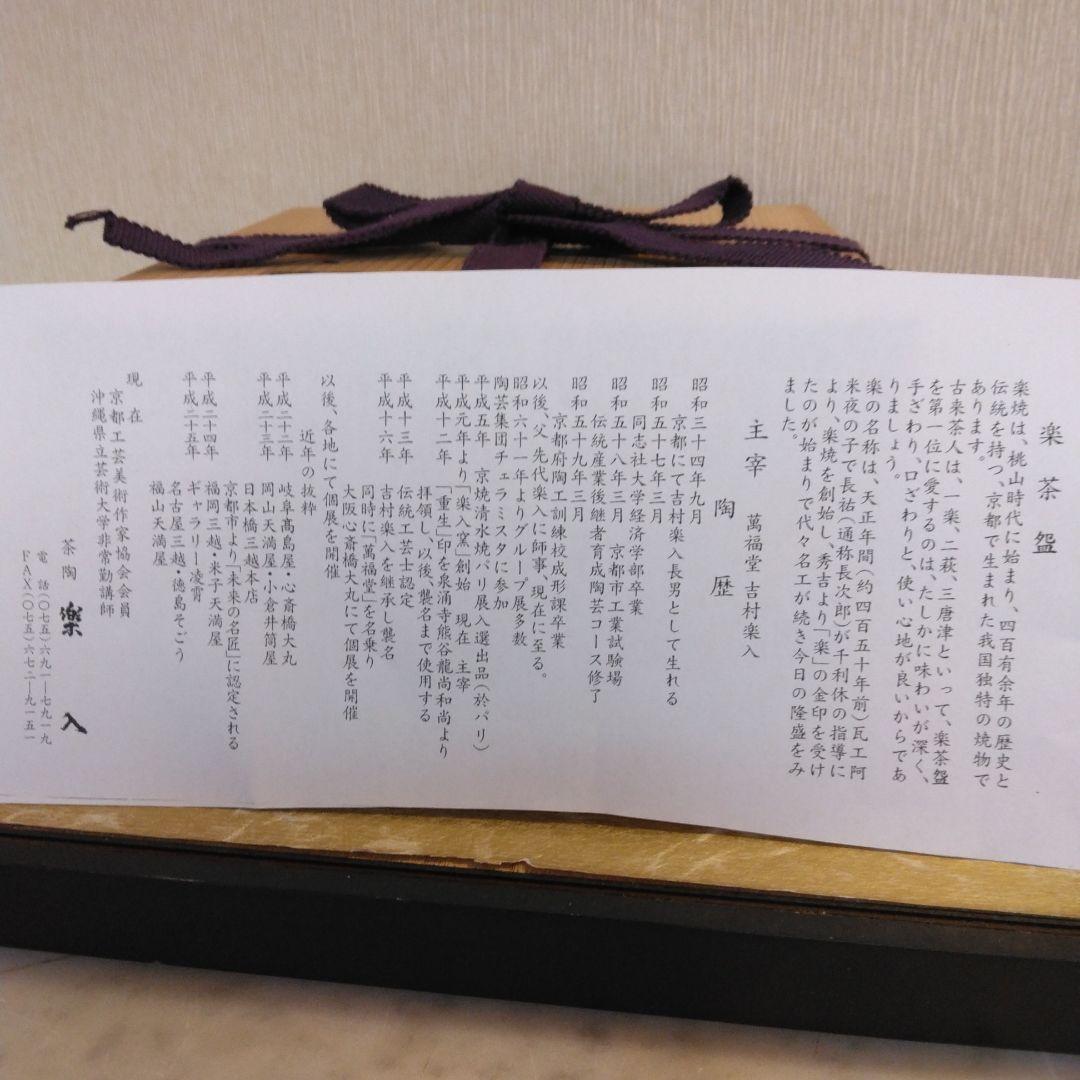 楽茶盌
楽焼は、桃山時代に始まり、四百有余年の歴史と
伝統を持つ、京都で生まれた我国独特の焼物で
あります。
古来茶人は、一楽、二萩、三唐津といって、楽茶盌
を第一位に愛するのは、たしかに味わいが深く、
手ざわり、口ざわりと、使い心地が良いからであ
りましょう。
楽の名称は、天正年間(約四百五十年前)瓦工阿
米夜の子で長祐(通称長次郎)が千利休の指導に
より、楽焼を創始し、秀吉より「楽」の金印を受け
たのが始まりで代々名工が続き今日の隆盛をみ
ました。
主宰 萬福堂 吉村楽入
陶歴
昭和三十四年九月
京都にて吉村楽入長男として生れる
昭和五十七年三月
同志社大学経済学部卒業
昭和五十八年三月 京都市工業試験場
伝統産業後継者育成陶芸コース修了
昭和五十九年三月
京都府陶工訓練校成形課卒業
以後、父 先代楽入に師事、現在に至る。
昭和六十一年よりグループ展多数
陶芸集団チェラミスタに参加
平成五年 京焼清水焼パリ展入選出品(於パリ)
平成元年より「楽入窯」創始 現在 主宰
平成十二年 「重生」印を泉涌寺熊谷龍尚和尚より
拝領し、以後、襲名まで使用する
平成十三年 伝統工芸士認定
平成十六年 吉村楽入を継承し襲名
同時に「萬福堂」を名乗り
大阪心斎橋大丸にて個展を開催
以後、各地にて個展を開催
近年の抜粋
平成二十二年 岐阜髙島屋・心斎橋大丸
平成二十三年 岡山天満屋・小倉井筒屋
日本橋三越本店
京都市より「未来の名匠」に認定される
平成二十四年 福岡三越・米子天満屋
平成二十五年 ギャラリー凌霄
名古屋三越・徳島そごう
福山天満屋
現在
京都工芸美術作家協会会員
沖縄県立芸術大学非常勤講師
茶陶 楽入
電話(〇七五)六九一―七九一九
FAX(〇七五)六七二―九一五一